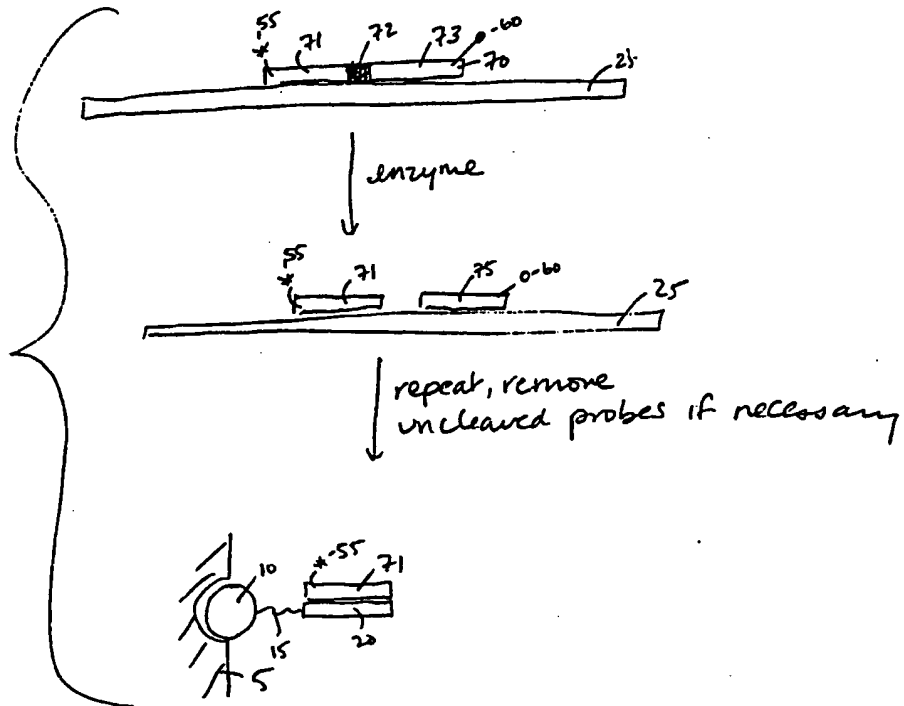 *-55 71 72 73 -60 70 25
enzyme
*-55 71 75 -60 25
repeat, remove
uncleaved probes if necessary
10 *-55 71
15 20
5